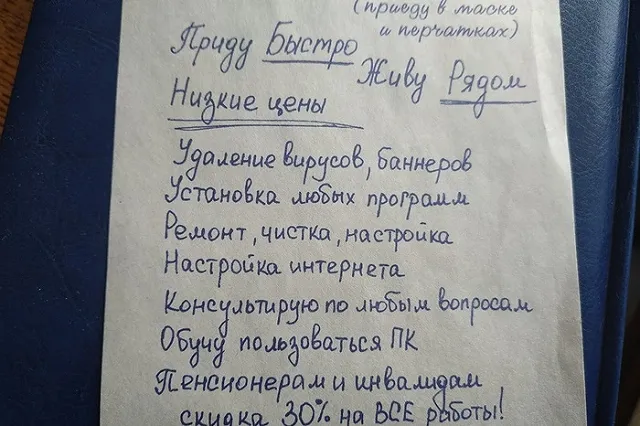 (приеду в маске
и перчатках)
Приду Быстро
Живу Рядом
Низкие цены
Удаление вирусов, баннеров
Установка любых программ
Ремонт, чистка, настройка
Настройка интернета
Консультирую по любым вопросам
Обучу пользоваться ПК
Пенсионерам и инвалидам
скидка 30% на ВСЕ работы!